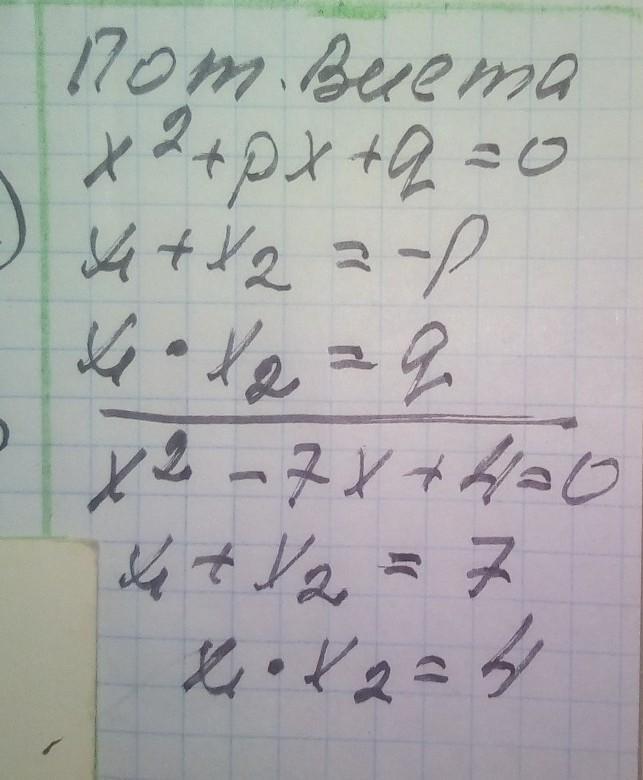 По т. Виета
x² + px + q = 0
x₁ + x₂ = -p
x₁ • x₂ = q
x² - 7x + 4 = 0
x₁ + x₂ = 7
x₁ • x₂ = 4